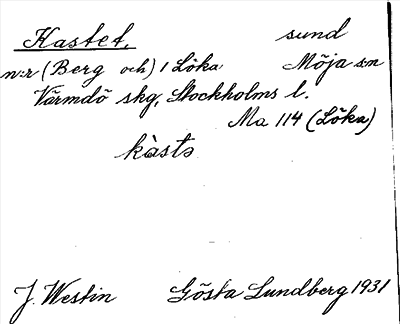 Kastet, sund
n:r (Berg och) 1 Löka Möja sn
Värmdö skg, Stockholms l.
Ma 114 (Löka)
kàstə
J. Westin Gösta Lundberg 1931